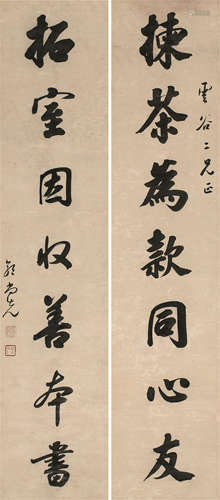 揀茶為款同心友
雲谷二兄正
拓室因收善本書
郭尚先